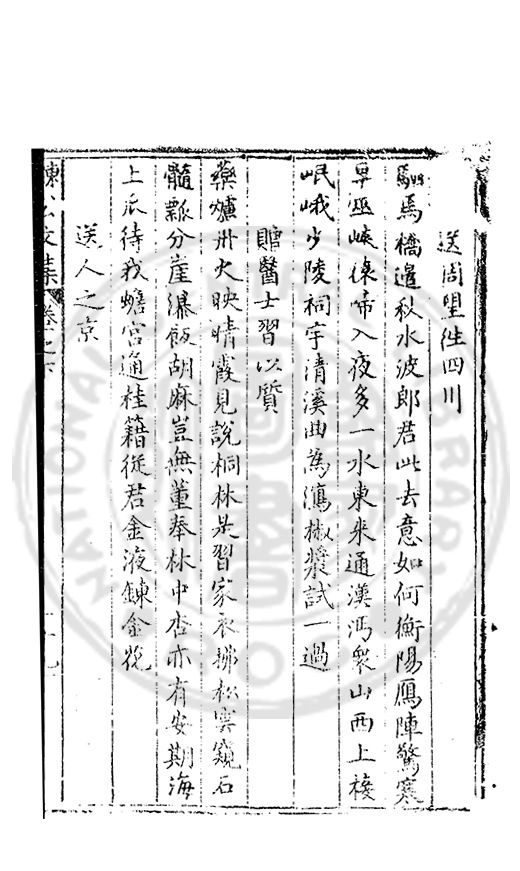 送周塱徃四川
駟馬橋邊秋水波郎君此去意如何衡陽鴈陣驚寒
早巫峽猿啼入夜多一水東来通漢沔衆山西上接
岷峨少陵祠宇清溪曲為瀉椒漿試一過
贈醫士習以質
藥爐丹火映晴霞見說桐林是習家衣拂松雲窺石
髓瓢分崖瀑飯胡麻豈無董奉林中杏亦有安期海
上瓜待我蟾宮通桂籍從君金液鍊金花
送人之京
文集卷之下
NATIONAL CENTRAL LIBRARY